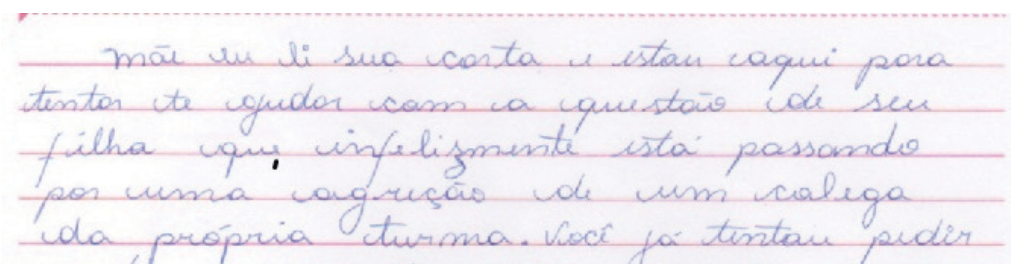 mãe eu li sua carta e estou aqui para
tentar te ajudar com a questão de seu
filha que infelizmente está passando
por uma agreção de um colega
da própria turma. Você já tentou pedir